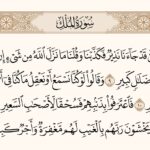 سُورَةُ المُلْكِ
قَدْ جَاءَنَا نَذِيرٌ فَكَذَّبْنَا وَقُلْنَا مَا نَزَّلَ اللَّهُ مِن شَىْءٍ إِنْ
ضَلَٰلٍ كَبِيرٍ ٩ وَقَالُوا۟ لَوْ كُنَّا نَسْمَعُ أَوْ نَعْقِلُ مَا كُنَّا فِىٓ
فَٱعْتَرَفُوا۟ بِذَنۢبِهِمْ فَسُحْقًا لِّأَصْحَٰبِ ٱلسَّعِيرِ
يَخْشَوْنَ رَبَّهُم بِٱلْغَيْبِ لَهُم مَّغْفِرَةٌ وَأَجْرٌ كَبِيرٌ